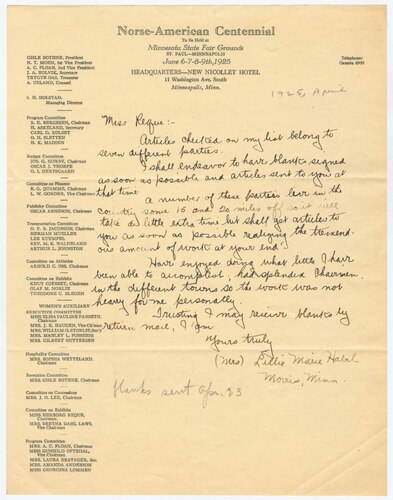 Norse-American Centennial
To be Held at
Minnesota State Fair Grounds
ST. PAUL—MINNEAPOLIS
June 6-7-8-9th, 1925
HEADQUARTERS—NEW NICOLLET HOTEL
11 Washington Ave. South
Minneapolis, Minn.
Telephone:
GISLE BOTHNE, President
N. T. MOEN, 1st Vice President
A. C. FLOAN, 2nd Vice President
J. A. HOLVIK, Secretary
TRYGVE OAS, Treasurer
A. OELAND, Counsel
S. H. HOLSTAD,
Managing Director
Program Committee
R. E. BERGESON, Chairman
H. ASKELAND, Secretary
CARL D. KOLSET
O. H. SLETTEN
H. K. MADSEN
Budget Committee
JOS. G. NORBY, Chairman
OSCAR J. THORPE
O. I. HERTSGAARD
Committee on Finance
E. G. QUAMME, Chairman
L. W. GORDER, Vice Chairman
Publicity Committee
OSCAR ARNESON, Chairman
Transportation Committee
O. P. B. JACOBSON, Chairman
HERMAN MUELLER
LEE KUEMPEL
REV. M. E. WALDELAND
ARTHUR L. JOHNSTON
Committee on Athletics
ARNOLD C. OSS, Chairman
Committee on Exhibits
KNUT GJERSET, Chairman
OLAF M. NORLIE
THEODORE C. BLEGEN
WOMEN'S AUXILIARY
EXECUTIVE COMMITTEE
MISS ELISA PAULINE FARSETH,
Chairman
MRS. J. E. HAUGEN, Vice Ch'man
MRS. WILLIAM O. STORLIE, Sec'y
MRS. MANLEY L. FOSSEEN
MRS. GILBERT GUTTERSEN
Hospitality Committee
MRS. SOPHIA WETTELAND,
Chairman
Reception Committee
MRS. GISLE BOTHNE, Chairman
Committee on
MRS. J. O. LEE, Chairman
Committee on Exhibits
MISS HERBORG REQUE, Chairman
MRS. BERTHA DAHL LAWS,
Vice Chairman
Program Committee
MRS. A. C. FLOAN, Chairman
MISS GUNHILD OFTEDAL,
Vice Chairman
MRS. LAURA BRATAGER, Sec.
MRS. AMANDA ANDERSON
MISS GEORGINA LOMMEN
1925, April
Miss Reque:-
Articles checked on my list belong to
seven different parties.
I shall endeavor to have blanks signed
as soon as possible and articles sent to you at
that time.
A number of these parties live in the
country some 15 and 20 miles off so it will
take a little extra time but shall get articles to
you as soon as possible realizing the tremend-
ous amount of work at your end.
Have enjoyed doing what little I have
been able to accomplish, had splendid Chairmen
in the different towns so the work was not
heavy for me personally.
Trusting I may receive blanks by
return mail, I am
Yours truly
(Mrs) Lillie Marie Habel
Morris, Minn.
Blanks sent Apr. 23